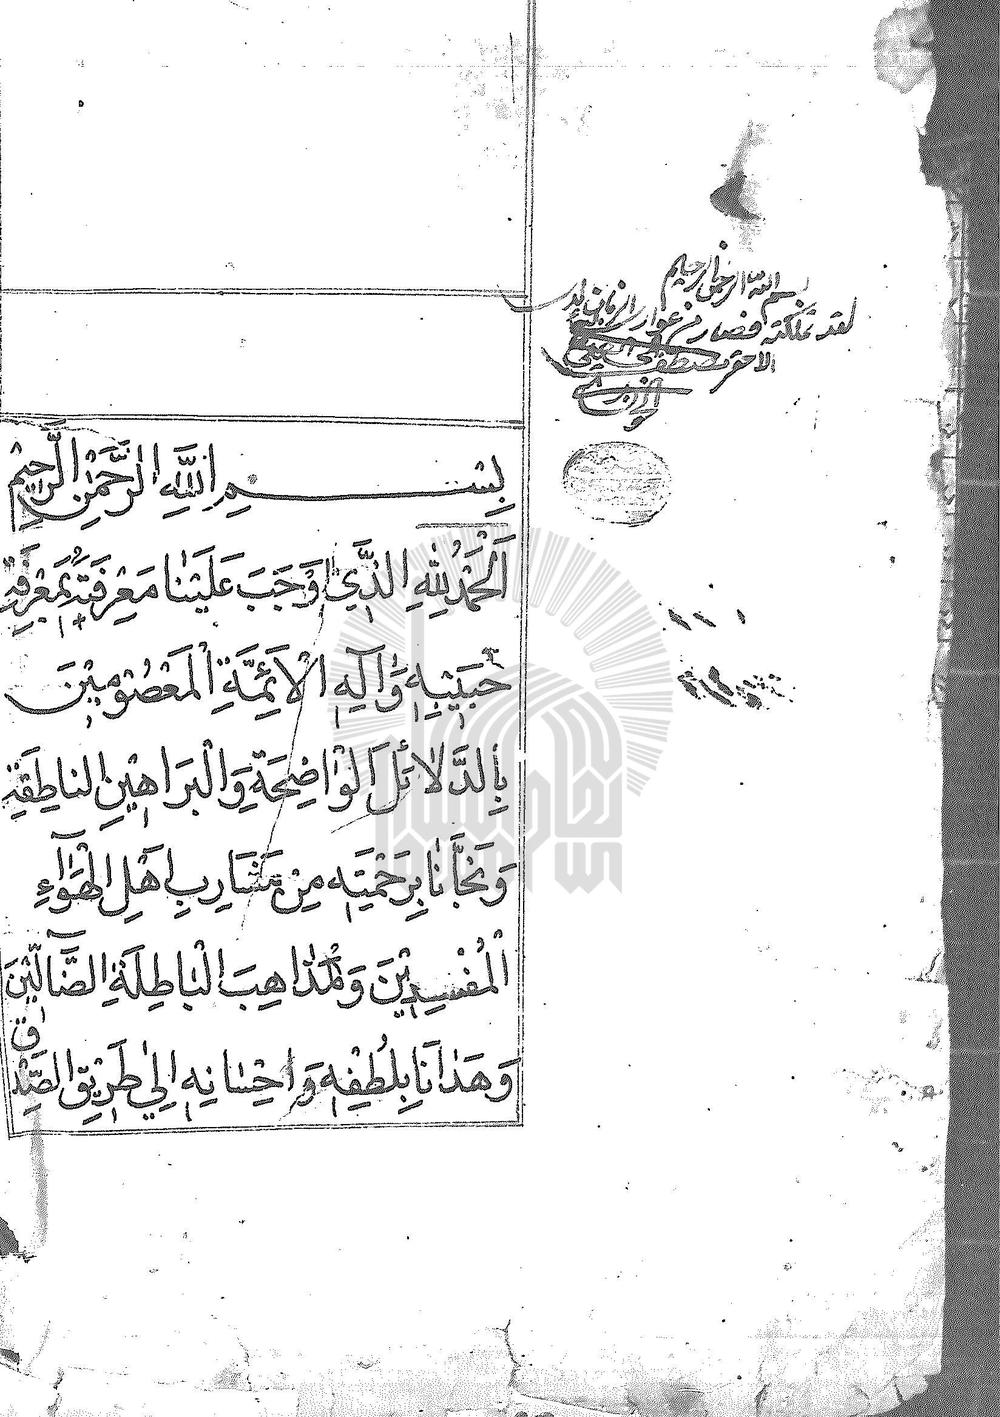 بسم الله الرحمن الرحيم
لقد تملكته فصار من عواري الزمان لدي
الاحقر مصطفى الحسيني
بِسْمِ اللهِ الرَّحْمٰنِ الرَّحِيمِ
اَلْحَمْدُ لِلّٰهِ الَّذِي اَوْجَبَ عَلَيْنَا مَعْرِفَتَهُ بِمَعْرِفَةِ
حَبِيْبِهِ وَآلِهِ الْاَئِمَّةِ الْمَعْصُومِيْنَ
بِالدَّلَائِلَ الْوَاضِحَةِ وَالْبَرَاهِيْنِ الناطِقَةِ
وَنَجَّانَا بِرَحْمَتِهِ مِنْ مَشَارِبِ اَهْلِ الْهَوَآءِ
الْمُفْسِدِيْنَ وَالْمَذَاهِبَ الْبَاطِلَةِ الضَّآلِّيْنَ
وَهَدٰانَا بِلُطْفِهِ وَاِحْسَانِهِ اِلٰي طَرِيْقِ الصِّدْق